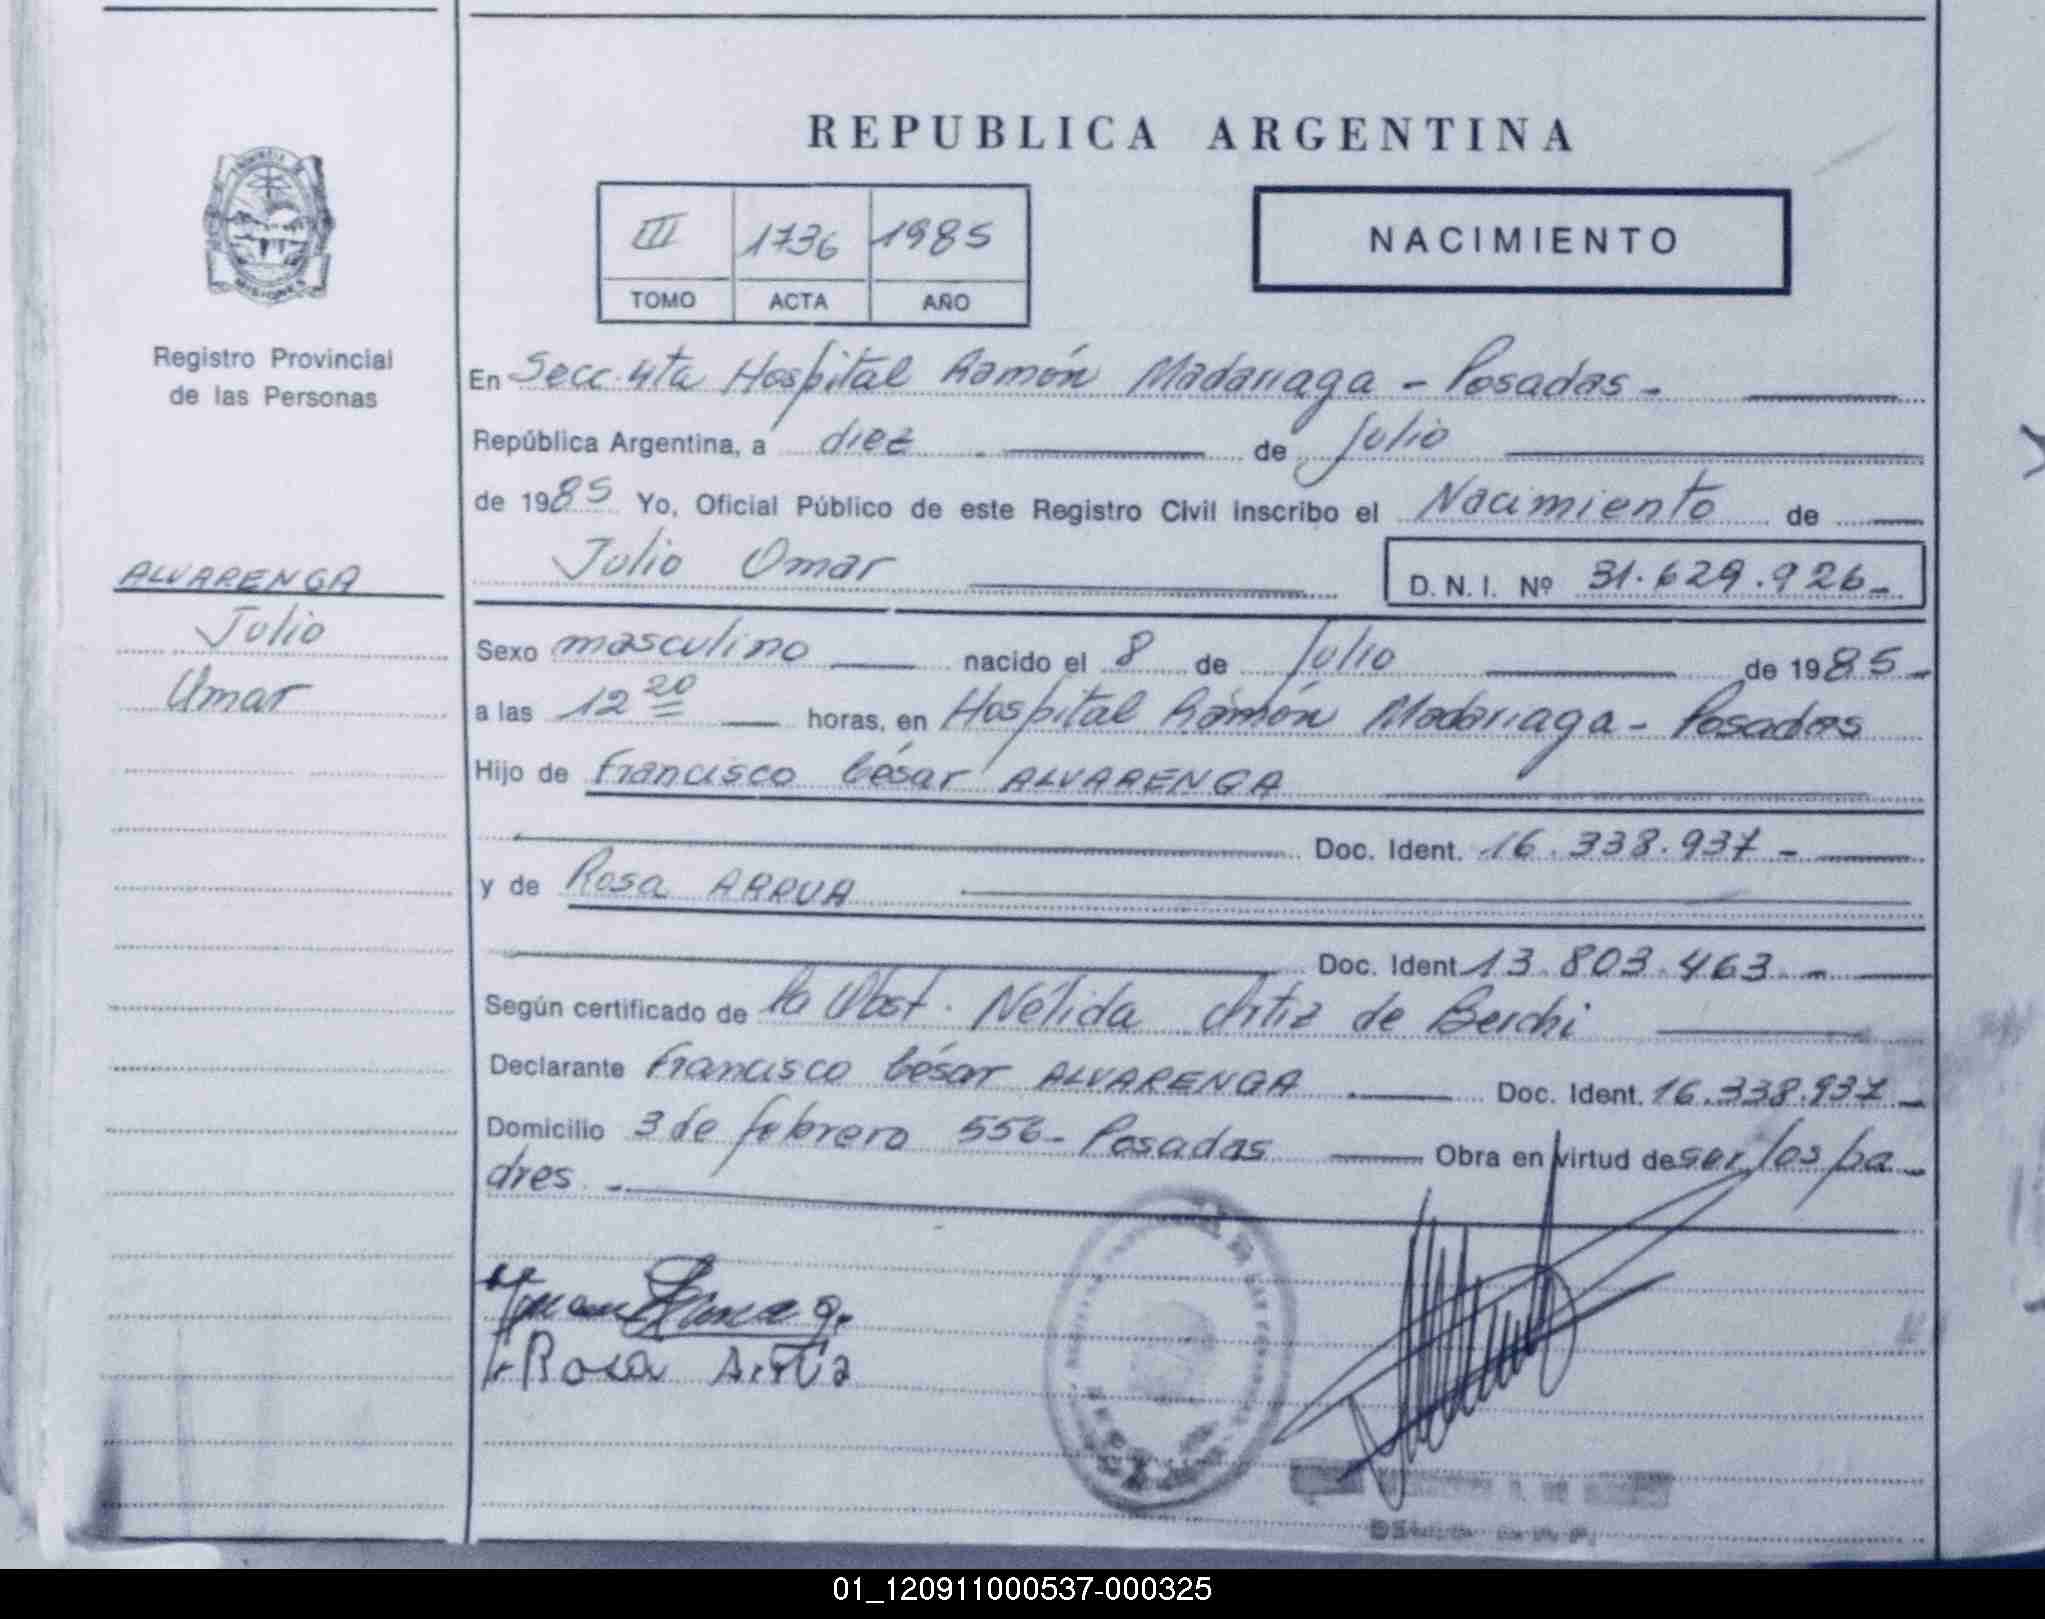 REPUBLICA ARGENTINA
III 1736 1985
TOMO ACTA AÑO
NACIMIENTO
MISIONES
Registro Provincial
de las Personas
ALVARENGA
Julio
Omar
En Secc. 4ta Hospital Ramón Madariaga - Posadas -
República Argentina, a diez de Julio
de 1985 Yo, Oficial Público de este Registro Civil inscribo el Nacimiento de
Julio Omar D. N. I. Nº 31.629.926-
Sexo masculino nacido el 8 de Julio de 1985-
a las 12 20 horas, en Hospital Ramón Madariaga - Posadas
Hijo de Francisco César ALVARENGA
Doc. Ident. 16.338.937-
y de Rosa ARRUA
Doc. Ident 13.803.463-
Según certificado de la Obst. Nélida Ortiz de Berchi
Declarante Francisco César ALVARENGA Doc. Ident. 16.338.937-
Domicilio 3 de febrero 556- Posadas Obra en virtud de ser los pa-
dres.-
Rosa
01_120911000537-000325